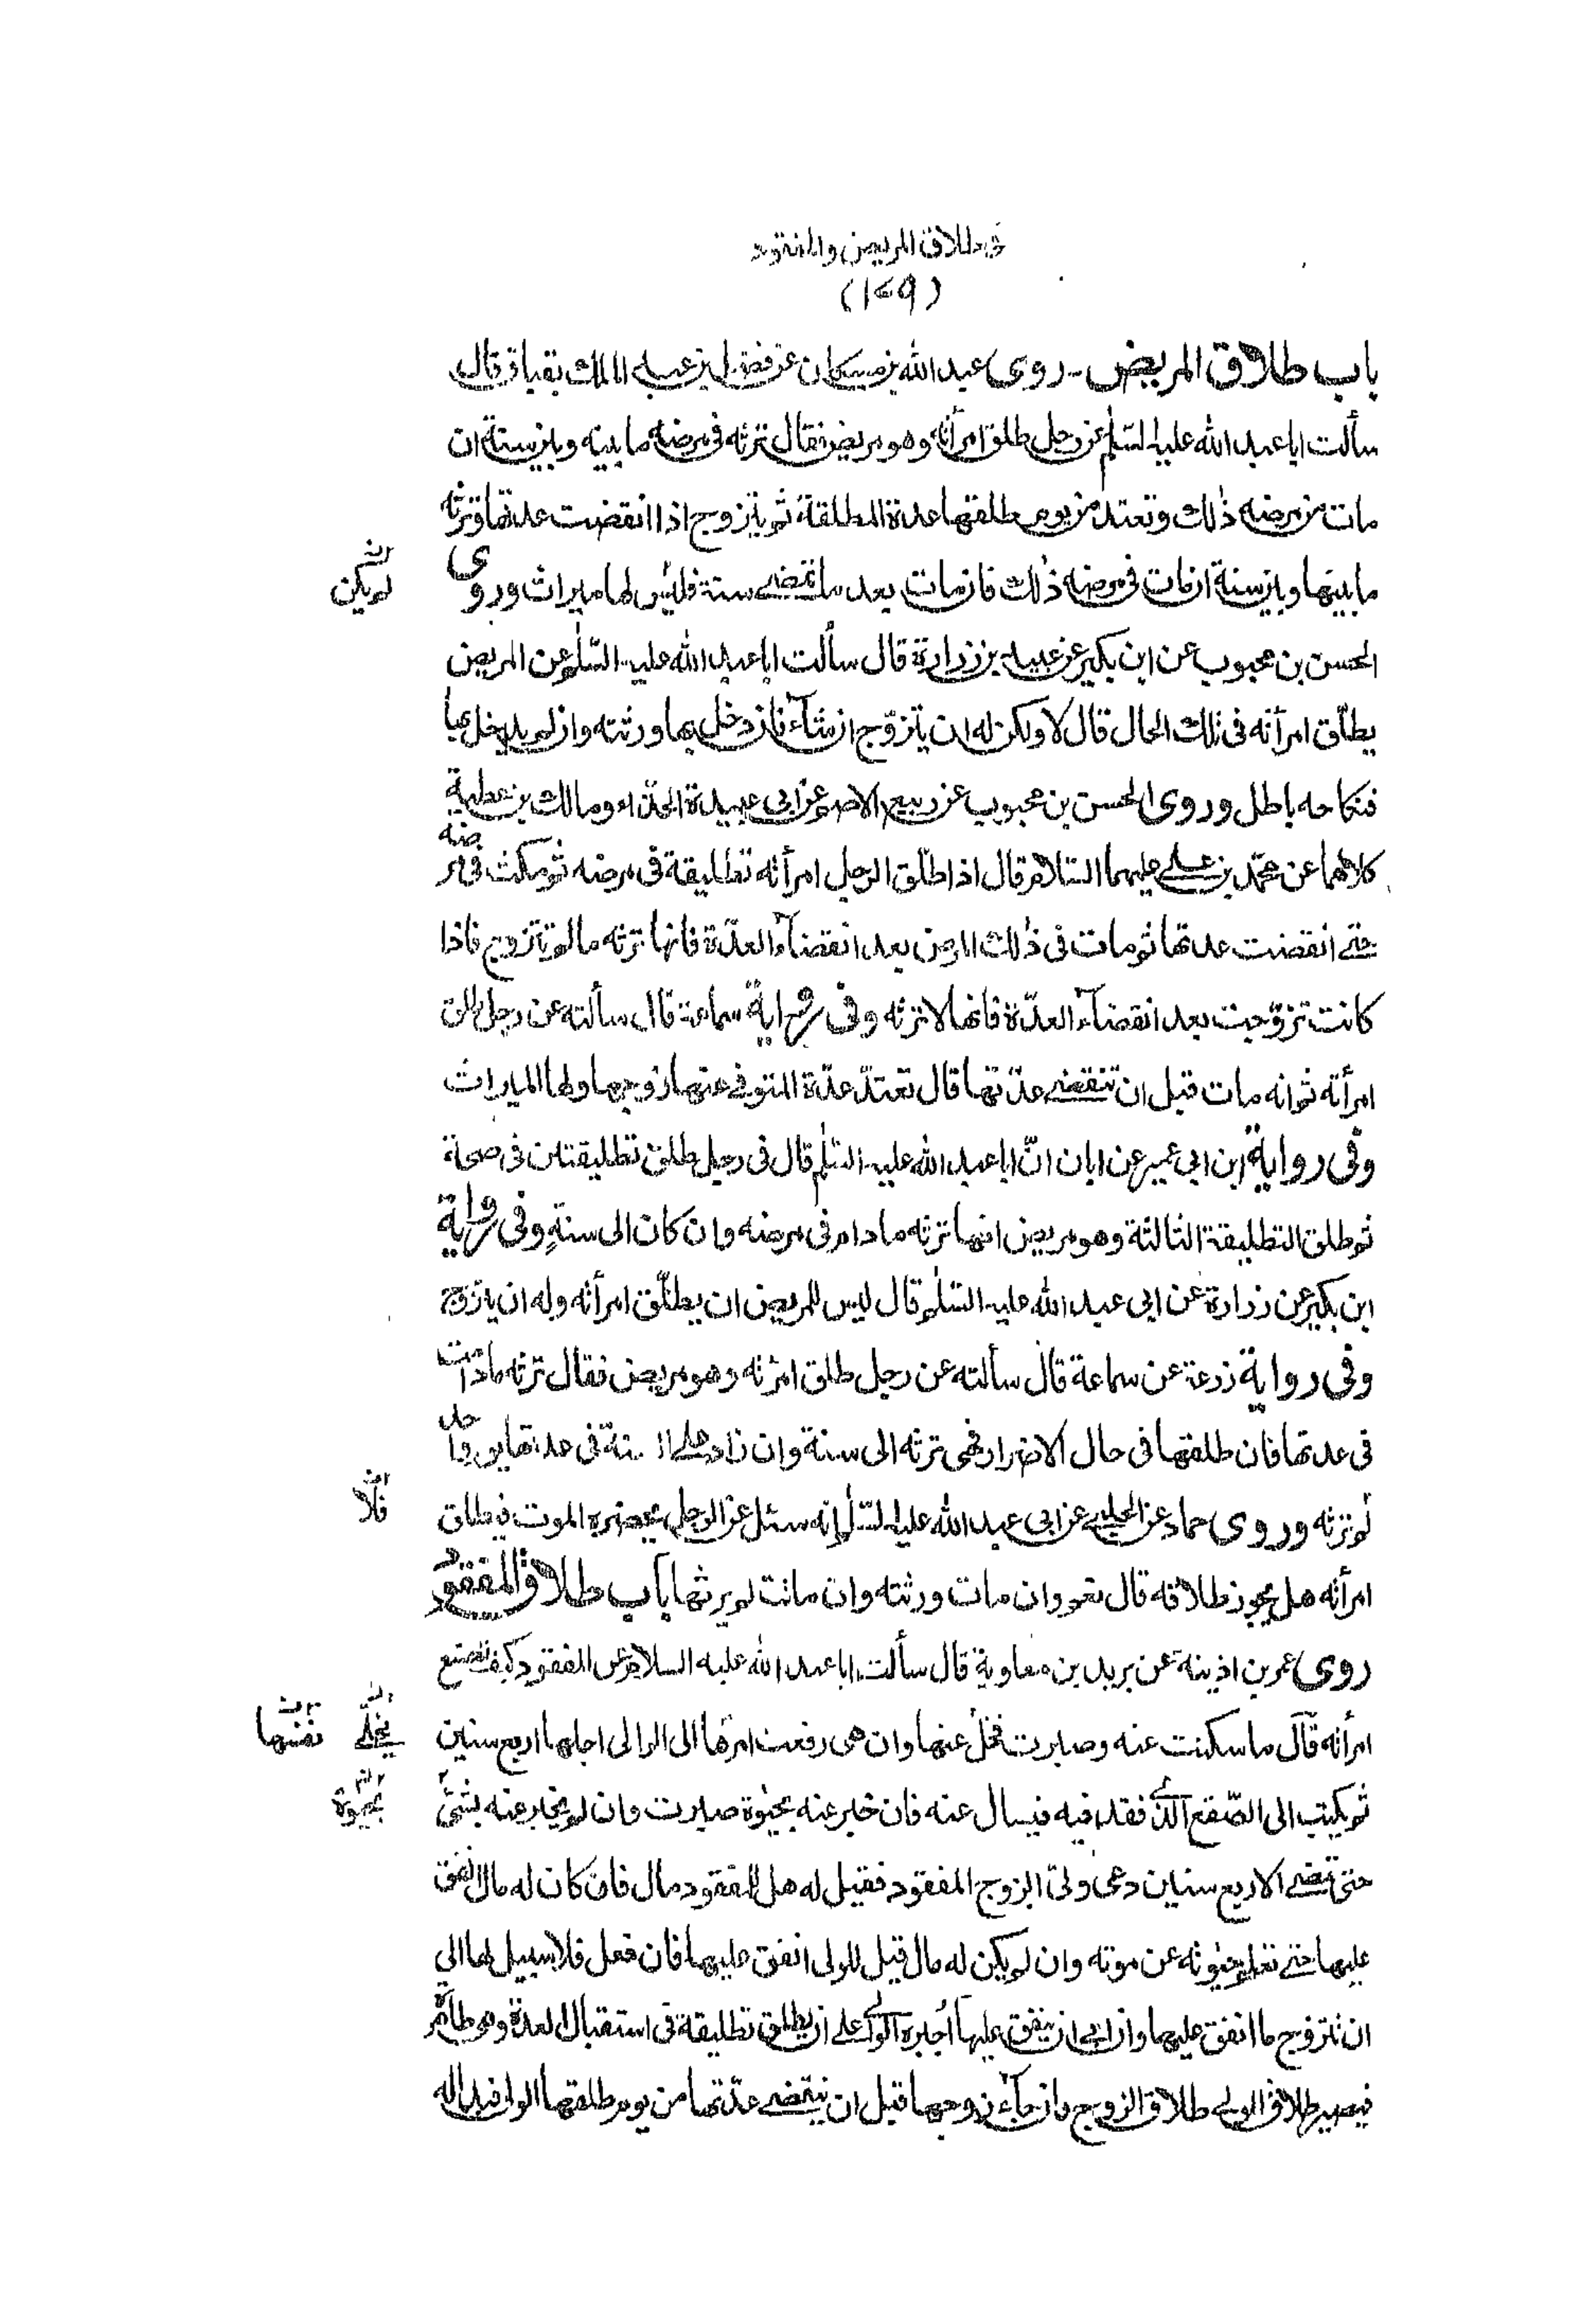 فى طلاق المريض والمفقود
(١٧٩)
باب طلاق المريض ـ روى عبد الله بن مسكان عن فضل بن عبد الملك بقباق قال
سألت ابا عبد الله عليه السّلم عن رجل طلق امرأته وهو مريض فقال ترثه فى مرضه ما بينه وبين سنة ان
مات من مرضه ذلك وتعتد من يوم طلقها عدة المطلقة ثم يتزوج اذا انقضت عدتها وترثه
ما بينها وبين سنة ان مات فى مرضه ذلك فان مات بعد ما تمضى سنة فليس لها ميراث وروى
لم يكن
الحسن بن محبوب عن ابن بكير عن عبيد بن زرارة قال سألت ابا عبد الله عليه السّلم عن المريض
يطلّق امرأته فى تلك الحال قال لا ولكن له ان يتزوّج ان شآء فان دخل بها ورثته وان لم يدخل بها
فنكاحه باطل وروى الحسن بن محبوب عن ربيع الاصم عن ابى عبيدة الحذّاء ومالك بن عطية
كلاهما عن محمّد بن على عليهما السّلام قال اذا طلّق الرجل امرأته تطليقة فى مرضه ثم مكث فى مرضه
حتى انقضت عدتها ثم مات فى ذلك المرض بعد انقضآء العدّة فانها ترثه ما لم تتزوج فاذا
كانت تزوّجت بعد انقضآء العدّة فانها لا ترثه وفى رواية سماعة قال سألته عن رجل طلق
امرأته ثم انه مات قبل ان تنقضى عدّتها قال تعتدّ عدّة المتوفى عنها زوجها ولها الميراث
وفى رواية ابن ابى عمير عن ابان انّ ابا عبد الله عليه السّلم قال فى رجل طلق تطليقتين فى صحة
ثم طلق التطليقة الثالثة وهو مريض انها ترثه ما دام فى مرضه وان كان الى سنةٍ وفى رواية
ابن بكير عن زرارة عن ابى عبد الله عليه السّلم قال ليس للمريض ان يطلّق امرأته وله ان يتزوج
وفى رواية زرعة عن سماعة قال سألته عن رجل طلق امرئته وهو مريض فقال ترثه ما دامت
فى عدتها فان طلقها فى حال الاضرار فهى ترثه الى سنة وان زاد على السنة فى عدتها يوم واحد
لم ترثه وروى حماد عن الحلبى عن ابى عبد الله عليه السّلم انه سئل عن الرجل يحضره الموت فيطلق
فلا
امرأته هل يجوز طلاقه قال نعم وان مات ورثته وان ماتت لم يرثها باب طلاق المفقود
روى عمر بن اذينة عن بريد بن معاوية قال سألت ابا عبد الله عليه السلام عن المفقود كيف تصنع
امرأته قال ما سكتت عنه وصبرت فخلّ عنها وان هى رفعت امرها الى الوالى اجلها اربع سنين
يخلّى
ثم يكتب الى الصّقع الّذى فقد فيه فيسأل عنه فان خبر عنه بحيوة صبرت وان لم يخبر عنه بشىء
بحيوة
حتى تمضى الاربع سنين دعى ولىّ الزوج المفقود فقيل له هل للمفقود مال فان كان له مال انفق
عليها حتى تعلم حيوته عن موته وان لم يكن له مال قيل للولى انفق عليها فان فعل فلا سبيل لها الى
ان تتزوج ما انفق عليها وان ابى ان ينفق عليها اجبره الوالى على ان يطلق تطليقة فى استقبال العدة وهو طاهر
فيصير طلاق الولى طلاق الزوج وان جآء زوجها قبل ان ينقضى عدّتها من يوم طلقها الولى فبدا له